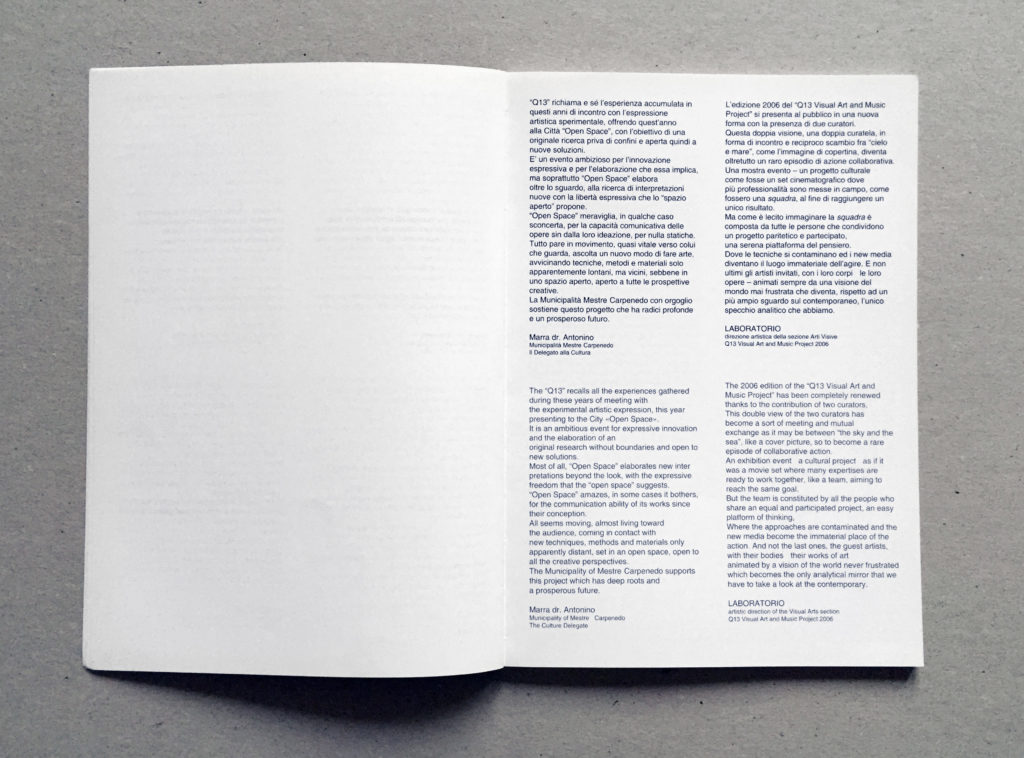 “Q13” richiama e sé l’esperienza accumulata in
questi anni di incontro con l’espressione
artistica sperimentale, offrendo quest’anno
alla Città “Open Space”, con l’obiettivo di una
originale ricerca priva di confini e aperta quindi a
nuove soluzioni.
E’ un evento ambizioso per l’innovazione
espressiva e per l’elaborazione che essa implica,
ma soprattutto “Open Space” elabora
oltre lo sguardo, alla ricerca di interpretazioni
nuove con la libertà espressiva che lo “spazio
aperto” propone.
“Open Space” meraviglia, in qualche caso
sconcerta, per la capacità comunicativa delle
opere sin dalla loro ideazione, per nulla statiche.
Tutto pare in movimento, quasi vitale verso colui
che guarda, ascolta un nuovo modo di fare arte,
avvicinando tecniche, metodi e materiali solo
apparentemente lontani, ma vicini, sebbene in
uno spazio aperto, aperto a tutte le prospettive
creative.
La Municipalità Mestre Carpenedo con orgoglio
sostiene questo progetto che ha radici profonde
e un prosperoso futuro.
Marra dr. Antonino
Municipalità Mestre Carpenedo
Il Delegato alla Cultura
The “Q13” recalls all the experiences gathered
during these years of meeting with
the experimental artistic expression, this year
presenting to the City «Open Space».
It is an ambitious event for expressive innovation
and the elaboration of an
original research without boundaries and open to
new solutions.
Most of all, “Open Space” elaborates new inter
pretations beyond the look, with the expressive
freedom that the “open space” suggests.
“Open Space” amazes, in some cases it bothers,
for the communication ability of its works since
their conception.
All seems moving, almost living toward
the audience, coming in contact with
new techniques, methods and materials only
apparently distant, set in an open space, open to
all the creative perspectives.
The Municipality of Mestre Carpenedo supports
this project which has deep roots and
a prosperous future.
Marra dr. Antonino
Municipality of Mestre Carpenedo
The Culture Delegate
L’edizione 2006 del “Q13 Visual Art and Music
Project” si presenta al pubblico in una nuova
forma con la presenza di due curatori.
Questa doppia visione, una doppia curatela, in
forma di incontro e reciproco scambio fra “cielo
e mare”, come l’immagine di copertina, diventa
oltretutto un raro episodio di azione collaborativa.
Una mostra evento – un progetto culturale
come fosse un set cinematografico dove
più professionalità sono messe in campo, come
fossero una squadra, al fine di raggiungere un
unico risultato.
Ma come è lecito immaginare la squadra è
composta da tutte le persone che condividono
un progetto paritetico e partecipato,
una serena piattaforma del pensiero.
Dove le tecniche si contaminano ed i new media
diventano il luogo immateriale dell’agire. E non
ultimi gli artisti invitati, con i loro corpi le loro
opere – animati sempre da una visione del
mondo mai frustrata che diventa, rispetto ad un
più ampio sguardo sul contemporaneo, l’unico
specchio analitico che abbiamo.
LABORATORIO
direzione artistica della sezione Arti Visive
Q13 Visual Art and Music Project 2006
The 2006 edition of the “Q13 Visual Art and
Music Project” has been completely renewed
thanks to the contribution of two curators.
This double view of the two curators has
become a sort of meeting and mutual
exchange as it may be between “the sky and the
sea”, like a cover picture, so to become a rare
episode of collaborative action.
An exhibition event a cultural project as if it
was a movie set where many expertises are
ready to work together, like a team, aiming to
reach the same goal.
But the team is constituted by all the people who
share an equal and participated project, an easy
platform of thinking,
Where the approaches are contaminated and the
new media become the immaterial place of the
action. And not the last ones, the guest artists,
with their bodies their works of art
animated by a vision of the world never frustrated
which becomes the only analytical mirror that we
have to take a look at the contemporary.
LABORATORIO
artistic direction of the Visual Arts section
Q13 Visual Art and Music Project 2006